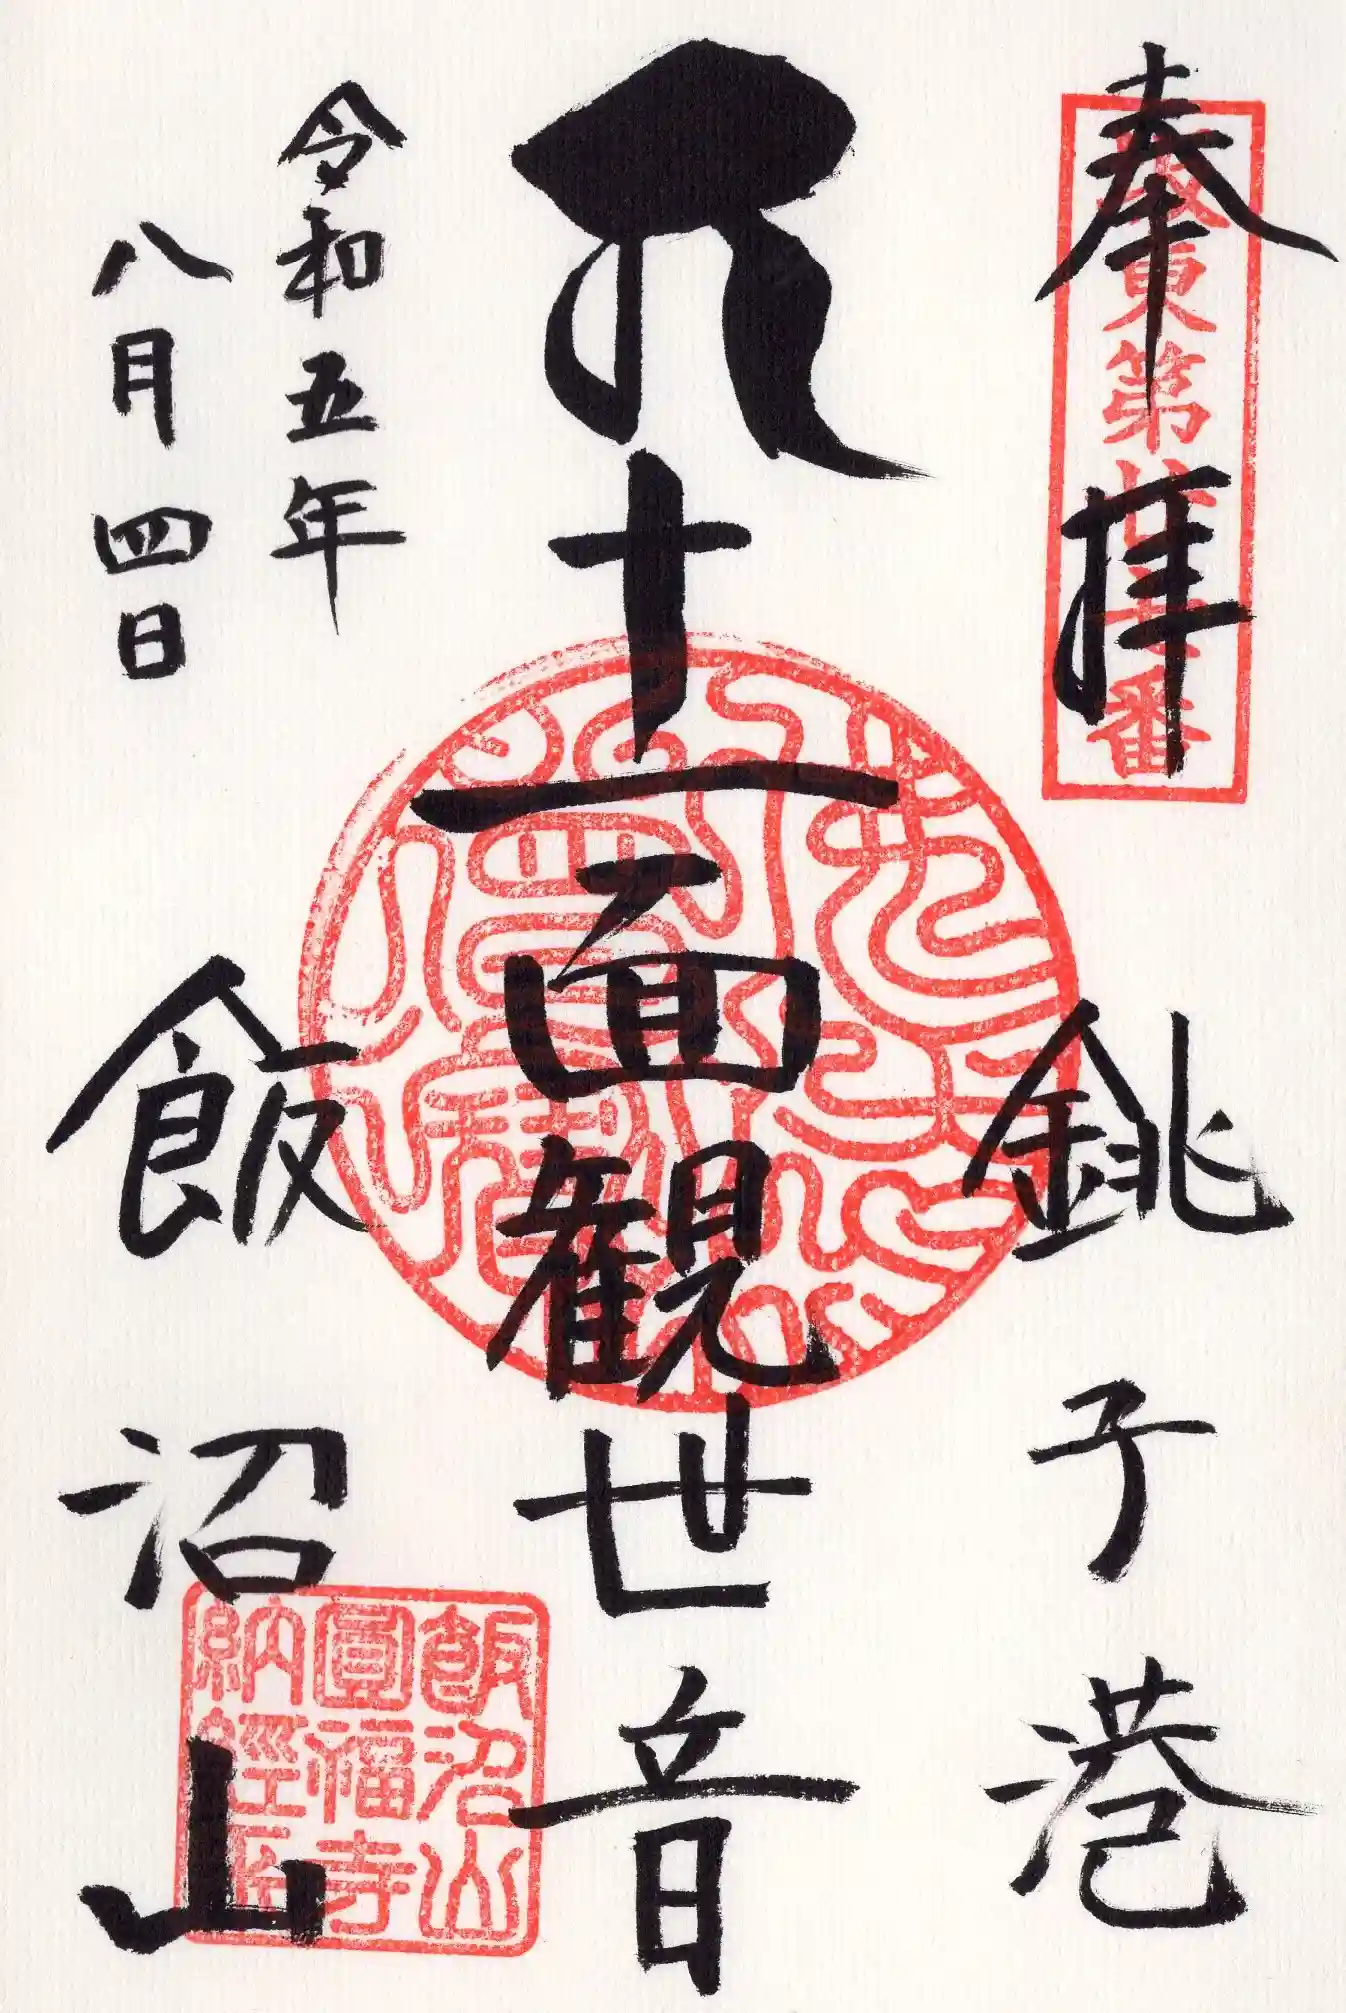 奉拝
坂東第廿七番
銚子港
十一面観世音
令和五年
八月四日
飯沼山
飯沼山
圓福寺
納經